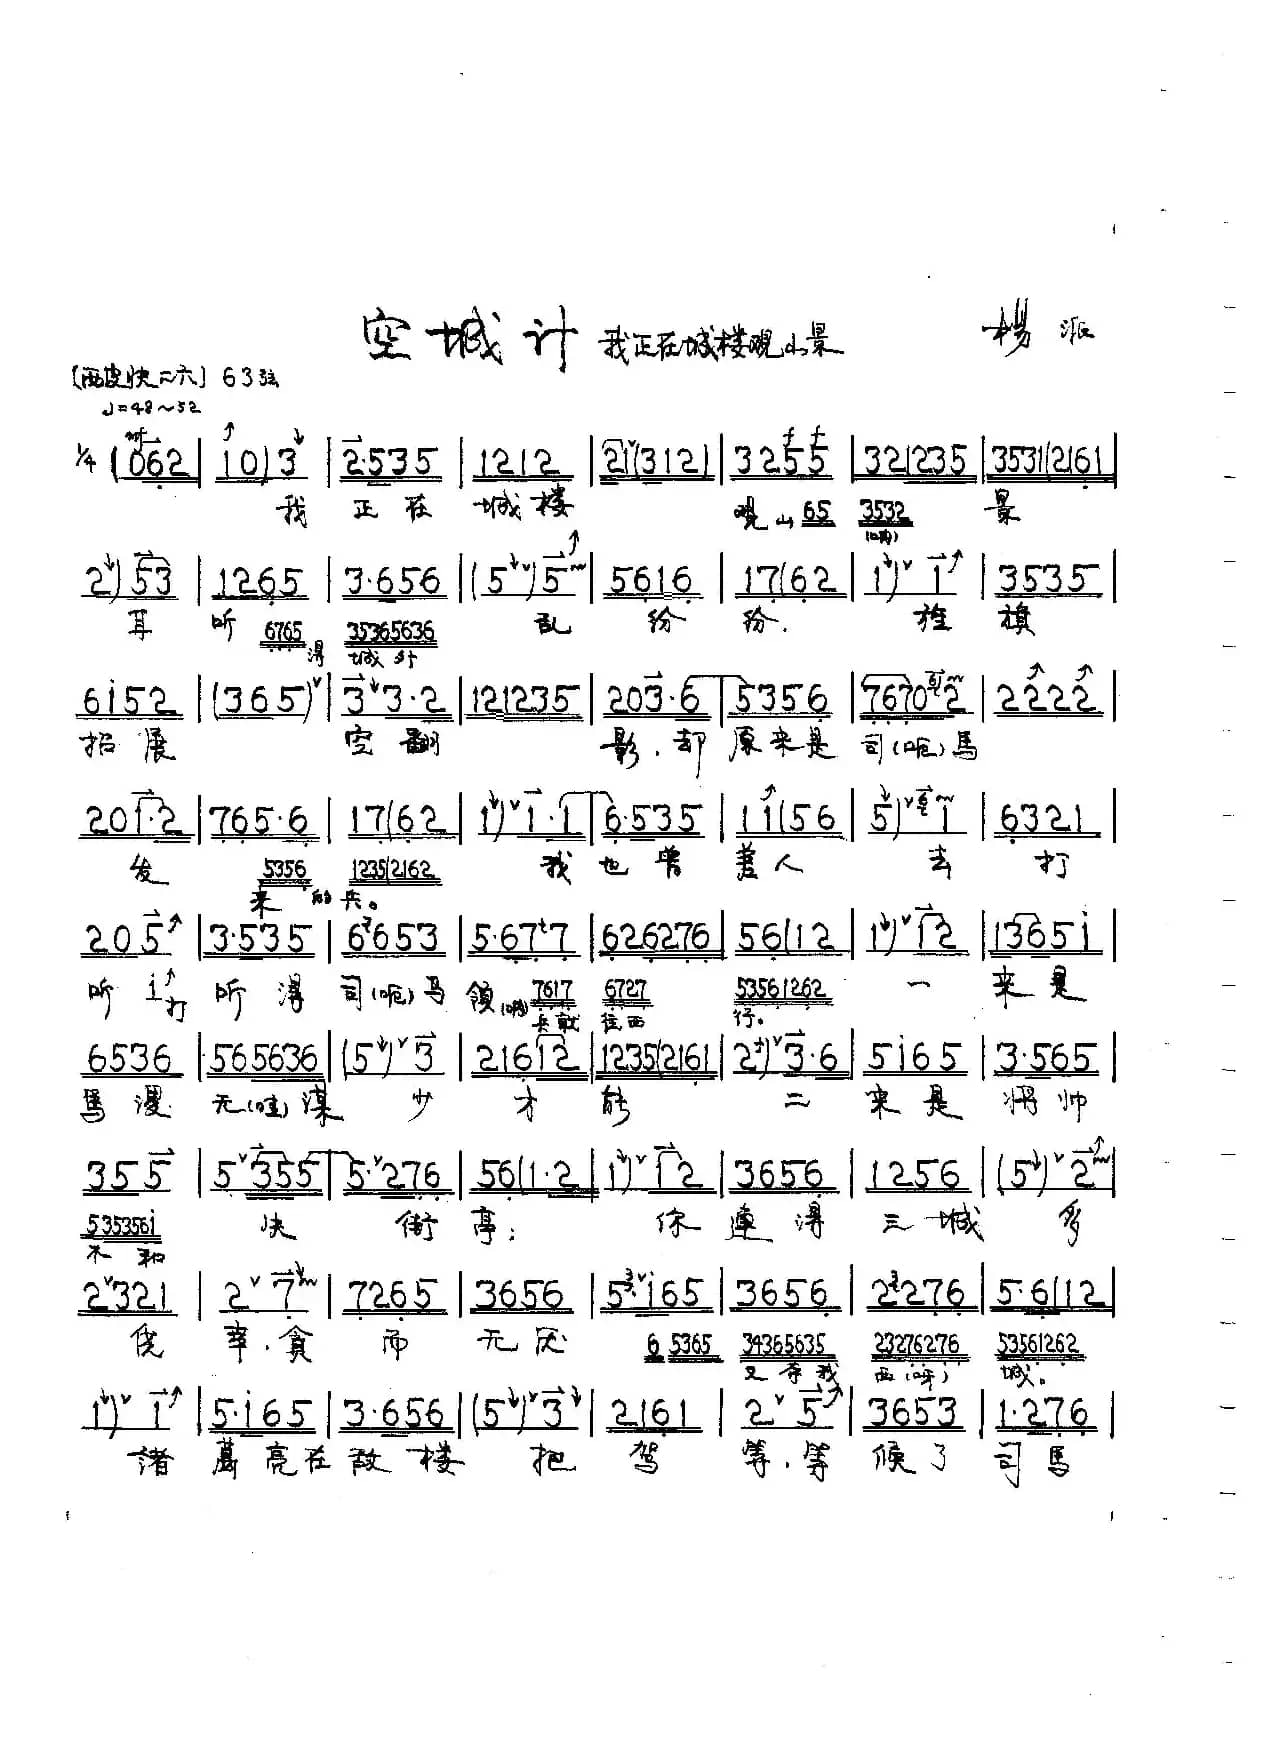 空城计 我正在城楼观山景 楊派
〔西皮快二六〕 63弦
♩=48~52
1/4 (062 | 10)3 | 2·535 | 1212 | 21(312) | 3255 | 321235 | 3531(2161
我 正在 城楼 观山 65 3532 景
2)53 | 1265 | 3·656 | (5)5 | 5616 | 17(62 | 1) 1 | 3535
耳 听 6765 得 35365636 城外 乱 纷 纷. 旌 旗
6i52 | (365) | 33·2 | 121235 | 203·6 | 5356 | 76702 | 2222
招展 空翻 影.却 原来是 司(呃)馬
201·2 | 765·6 | 17(62 | 1) 1·1 | 6·535 | 11(56 | 5) 1 | 6321
发 5356 来的 1235(2162 兵。 我 也曾 差人 去 打
205 | 3·535 | 6653 | 5·677 | 626276 | 56(12 | 1) 12 | 1365i
听 i打 听得 司(呃)马 領 7617 兵就 6727 往西 53561262 行。 一 来是
6536 | 565636 | (5) 3 | 21612 | 1235(2161 | 2) 3·6 | 5i65 | 3·565
馬谡 无(哇)谋 少 才 能 二 来是 将帅
355 | 5355 | 5·276 | 56(1·2 | 1) 12 | 3656 | 1256 | (5) 2
535356i 不和 决 街 亭; 你 連得 三城 多
2321 | 2 7 | 7265 | 3656 | 5 i65 | 3656 | 2276 | 5·6(12
侥 幸.貪 而 无厌 6 5365 34365635 又夺我 23276276 西(呀) 53561262 城。
1) 1 | 5·i65 | 3·656 | (5) 3 | 2161 | 2 5 | 3653 | 1·276
諸 葛亮在 敌楼 把 驾 等.等 候了 司馬